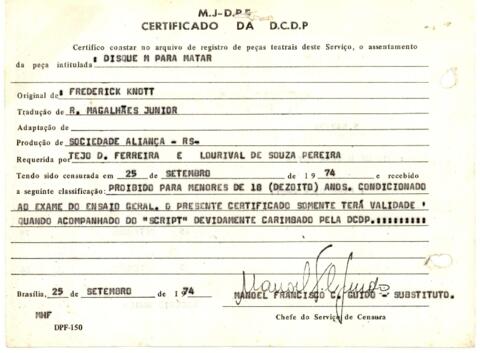 M.J-D.P.F
CERTIFICADO DA D.C.D.P
Certifico constar no arquivo de registro de peças teatrais deste Serviço, o assentamento
da peça intitulada: DISQUE M PARA MATAR
Original de: FREDERICK KNOTT
Tradução de R. MAGALHÃES JUNIOR
Adaptação de
Produção de SOCIEDADE ALIANÇA - RS-
Requerida por TEJO D. FERREIRA E LOURIVAL DE SOUZA PEREIRA
Tendo sido censurada em 25 de SETEMBRO de 1974 e recebido
a seguinte classificação: PROIBIDO PARA MENORES DE 18 (DEZOITO) ANOS. CONDICIONADO
AO EXAME DO ENSAIO GERAL. O PRESENTE CERTIFICADO SOMENTE TERÁ VALIDADE '
QUANDO ACOMPANHADO DO "SCRIPT" DEVIDAMENTE CARIMBADO PELA DCDP.!!!!!!!!!!
Brasília, 25 de SETEMBRO de 1974
MANOEL FRANCISCO C. GUIDO - SUBSTITUTO.
Chefe do Serviço de Censura
MHF
DPF-150